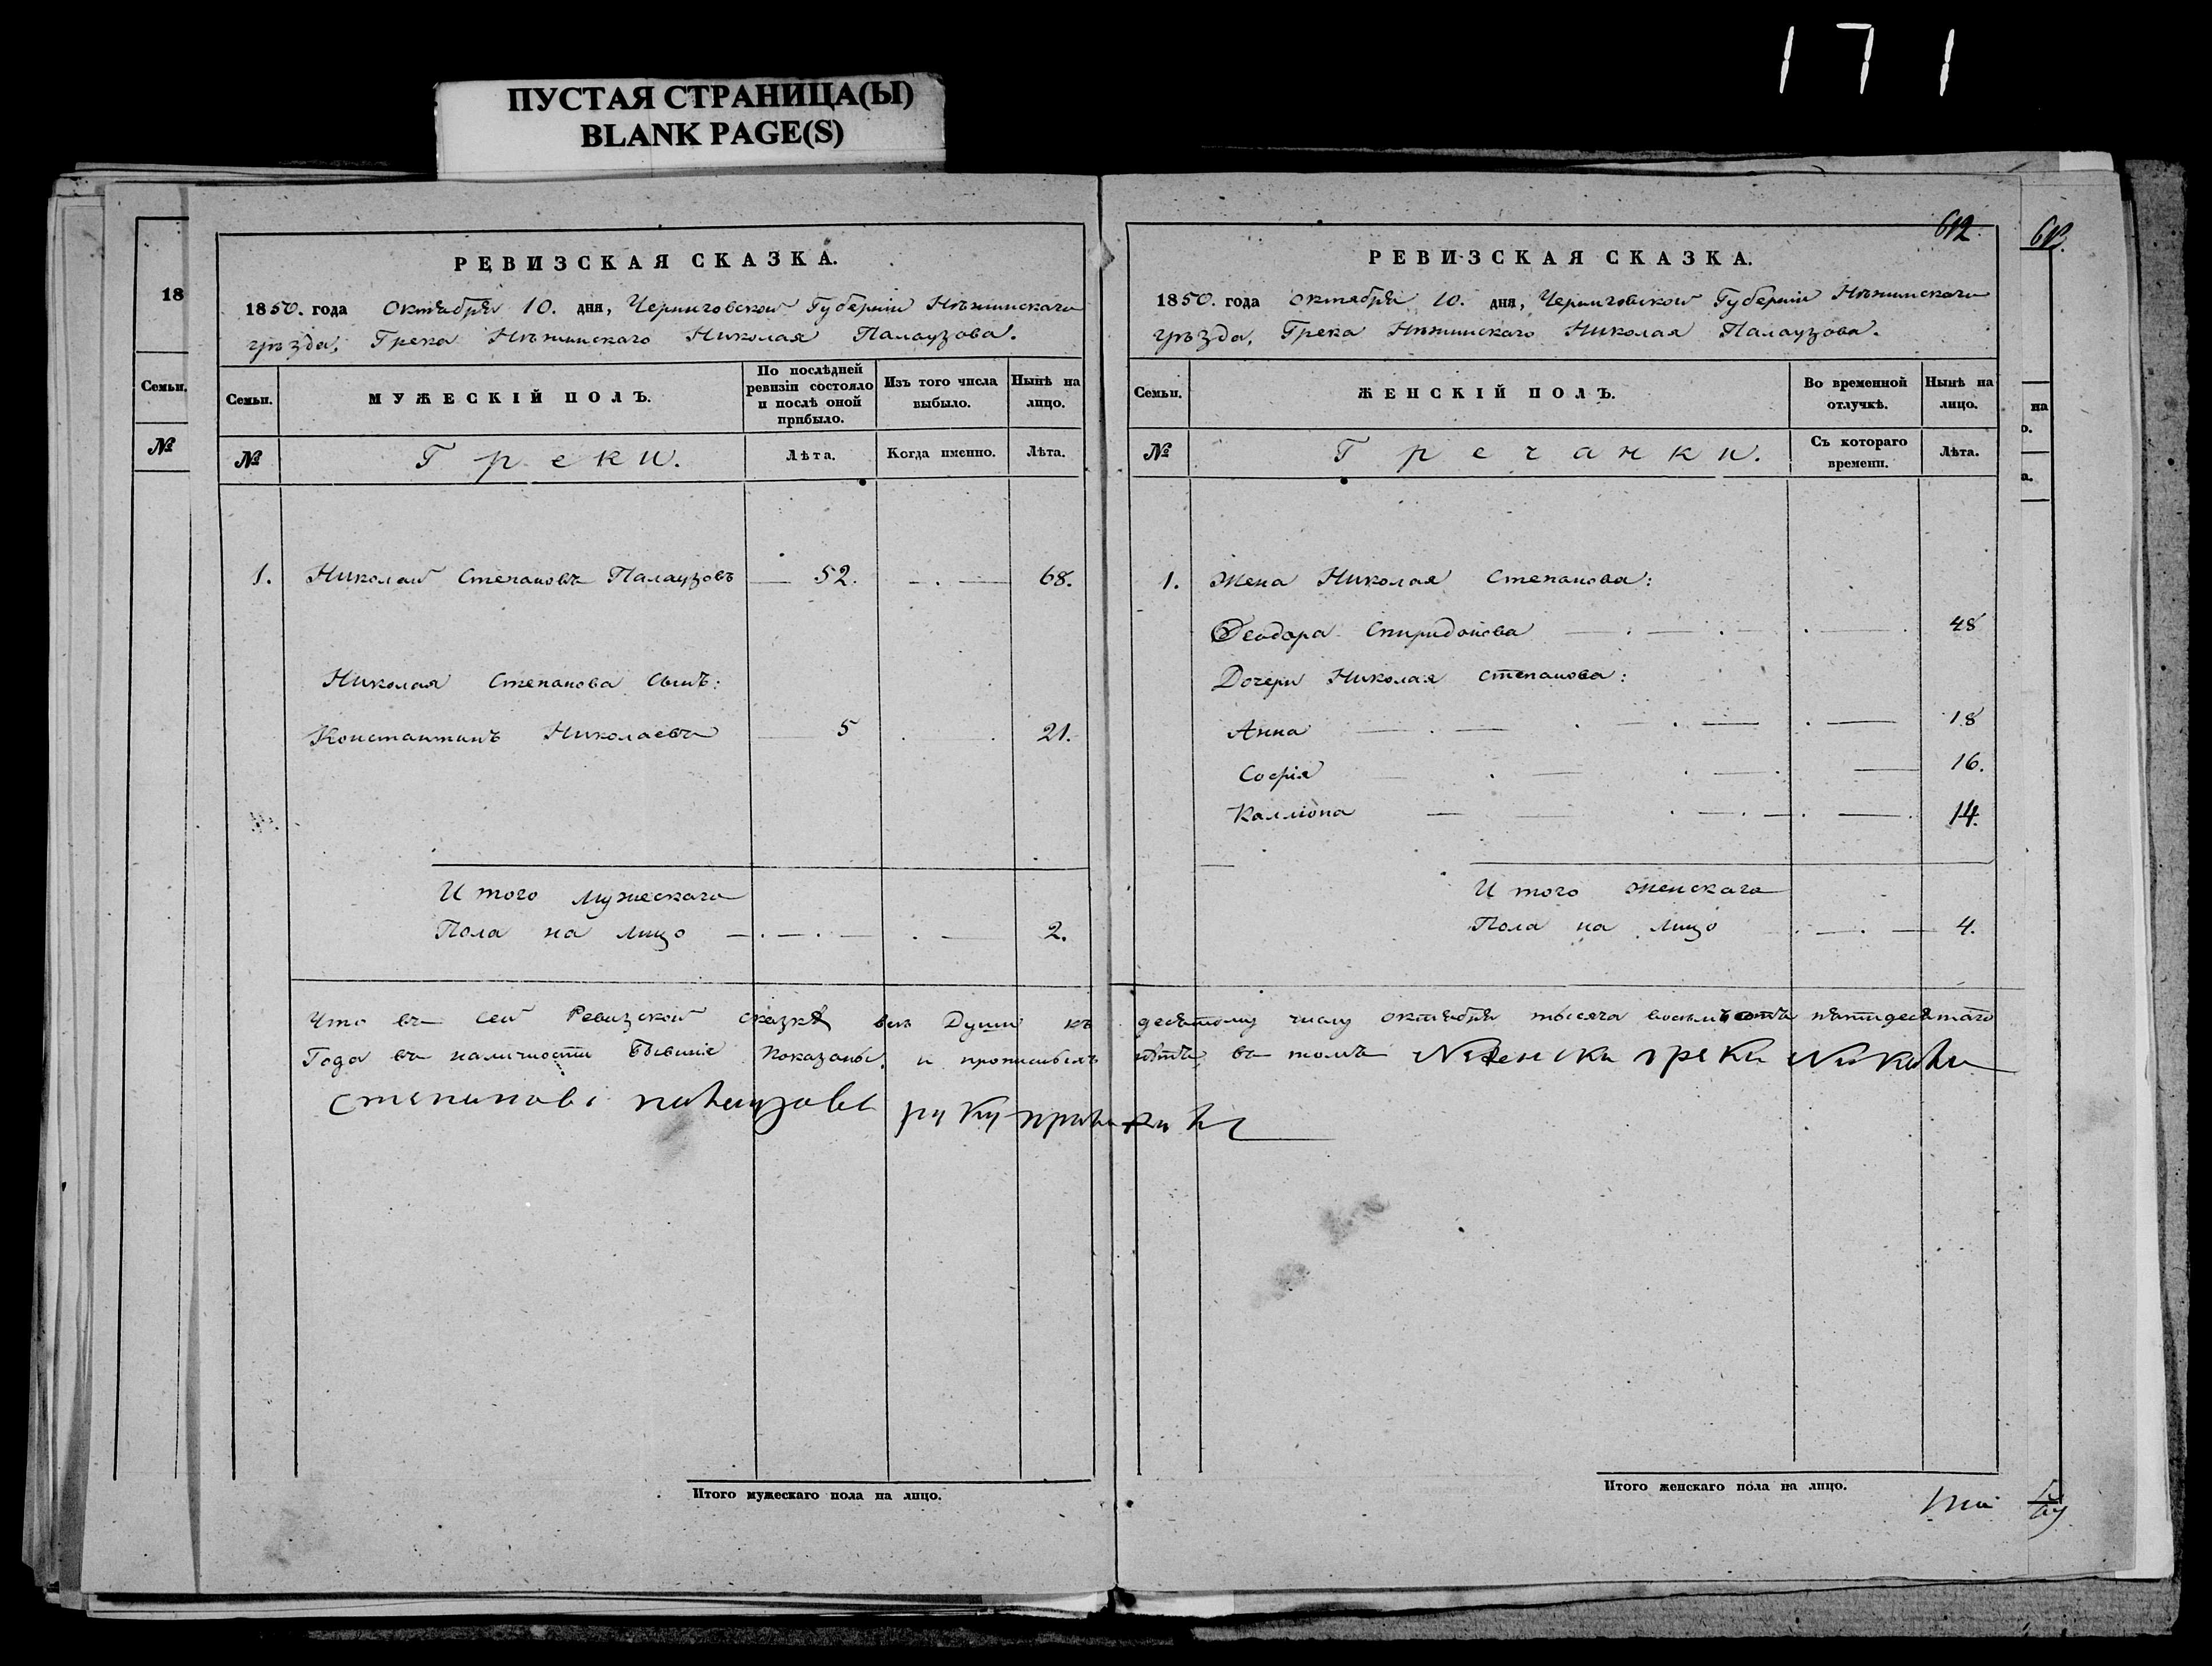 171
ПУСТАЯ СТРАНИЦА(Ы)
BLANK PAGE(S)
18
Семьи.
№
РЕВИЗСКАЯ СКАЗКА.
1850. года Октября 10. дня, Черниговской Губернiи Нѣжинскаго
уѣзда, Грека Нѣжинскаго Николая Палаузова.
Семьи.
МУЖЕСКIЙ ПОЛЪ.
По послѣдней ревизiи состояло и послѣ оной прибыло.
Изъ того числа выбыло.
Нынѣ на лицо.
№
Греки.
Лѣта.
Когда именно.
Лѣта.
1. Николай Степановъ Палаузовъ 52. 68.
Николая Степанова сынъ:
Константинъ Николаевъ 5 21.
И того мужескаго
Пола на лицо 2.
Итого мужескаго пола на лицо.
612
РЕВИЗСКАЯ СКАЗКА.
1850. года октября 10. дня, Черниговской Губернiи Нѣжинскаго
уѣзда, Грека Нѣжинскаго Николая Палаузова.
Семьи.
ЖЕНСКIЙ ПОЛЪ.
Во временной отлучкѣ.
Нынѣ на лицо.
№
Гречанки.
Съ котораго времени.
Лѣта.
1. Жена Николая Степанова:
Феодора Спиридонова 48
Дочери Николая Степанова:
Анна 18
Софiя 16.
Каллiопа 14.
И того женскаго
Пола на лицо 4.
Что въ сей Ревизской сказкѣ всѣ Души къ десятому числу октября тысяча восемьсотъ пятидесятаго
Года въ наличности бывшiе показаны, и прописныхъ нѣтъ, въ томъ
руку
Итого женскаго пола на лицо.
на
о.
а.